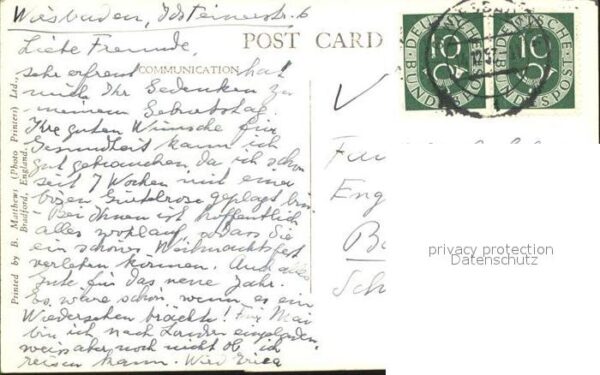 Wiesbaden, Idsteinerstr. 6
Liebe Freunde,
POST CARD
COMMUNICATION
sehr erfreut hat
mich Ihr Gedenken zu
meinem Geburtstag.
Ihre guten Wünsche für
Gesundheit kann ich
gut gebrauchen da ich schon
seit 7 Wochen mit einer
bösen Gürtelrose geplagt bin.
Bei Ihnen ist hoffentlich
alles wohlauf sodass Sie
ein schönes Weihnachtsfest
verleben können. Auch alles
Gute für das neue Jahr.
Es wäre schön, wenn es ein
Wiedersehen brächte! Für Mai
bin ich nach London eingeladen,
weiss aber noch nicht ob ich
reisen kann.
Printed by B. Matthews (Photo Printers) Ltd.,
Bradford, England.
DEUTSCHE BUNDESPOST
10
DEUTSCHE BUNDESPOST
10
Eng
Ba
Sch
privacy protection
Datenschutz